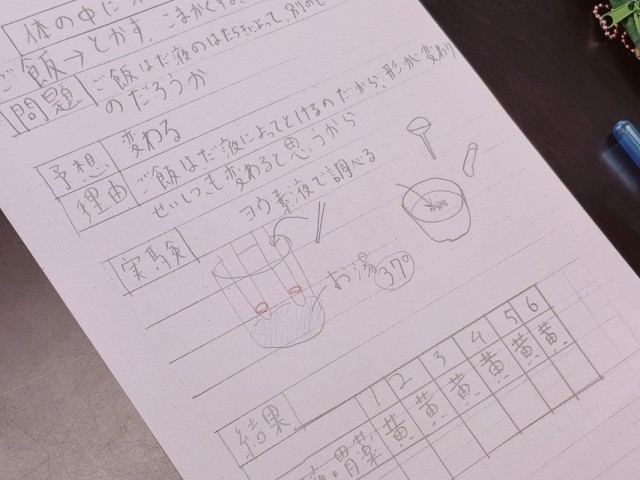 体の中に
ご飯→とかす、こまかくする。
問題 ご飯はだ液のはたらきによって、別のもの
のだろうか
予想 変わる
理由 ご飯はだ液によってとけるのだから、形が変わり
せいしつも変わると思うから
実験 ヨウ素液で調べる
お湯 37°
結果 1 2 3 4 5 6
胃薬 黄 黄 黄 黄 黄 黄